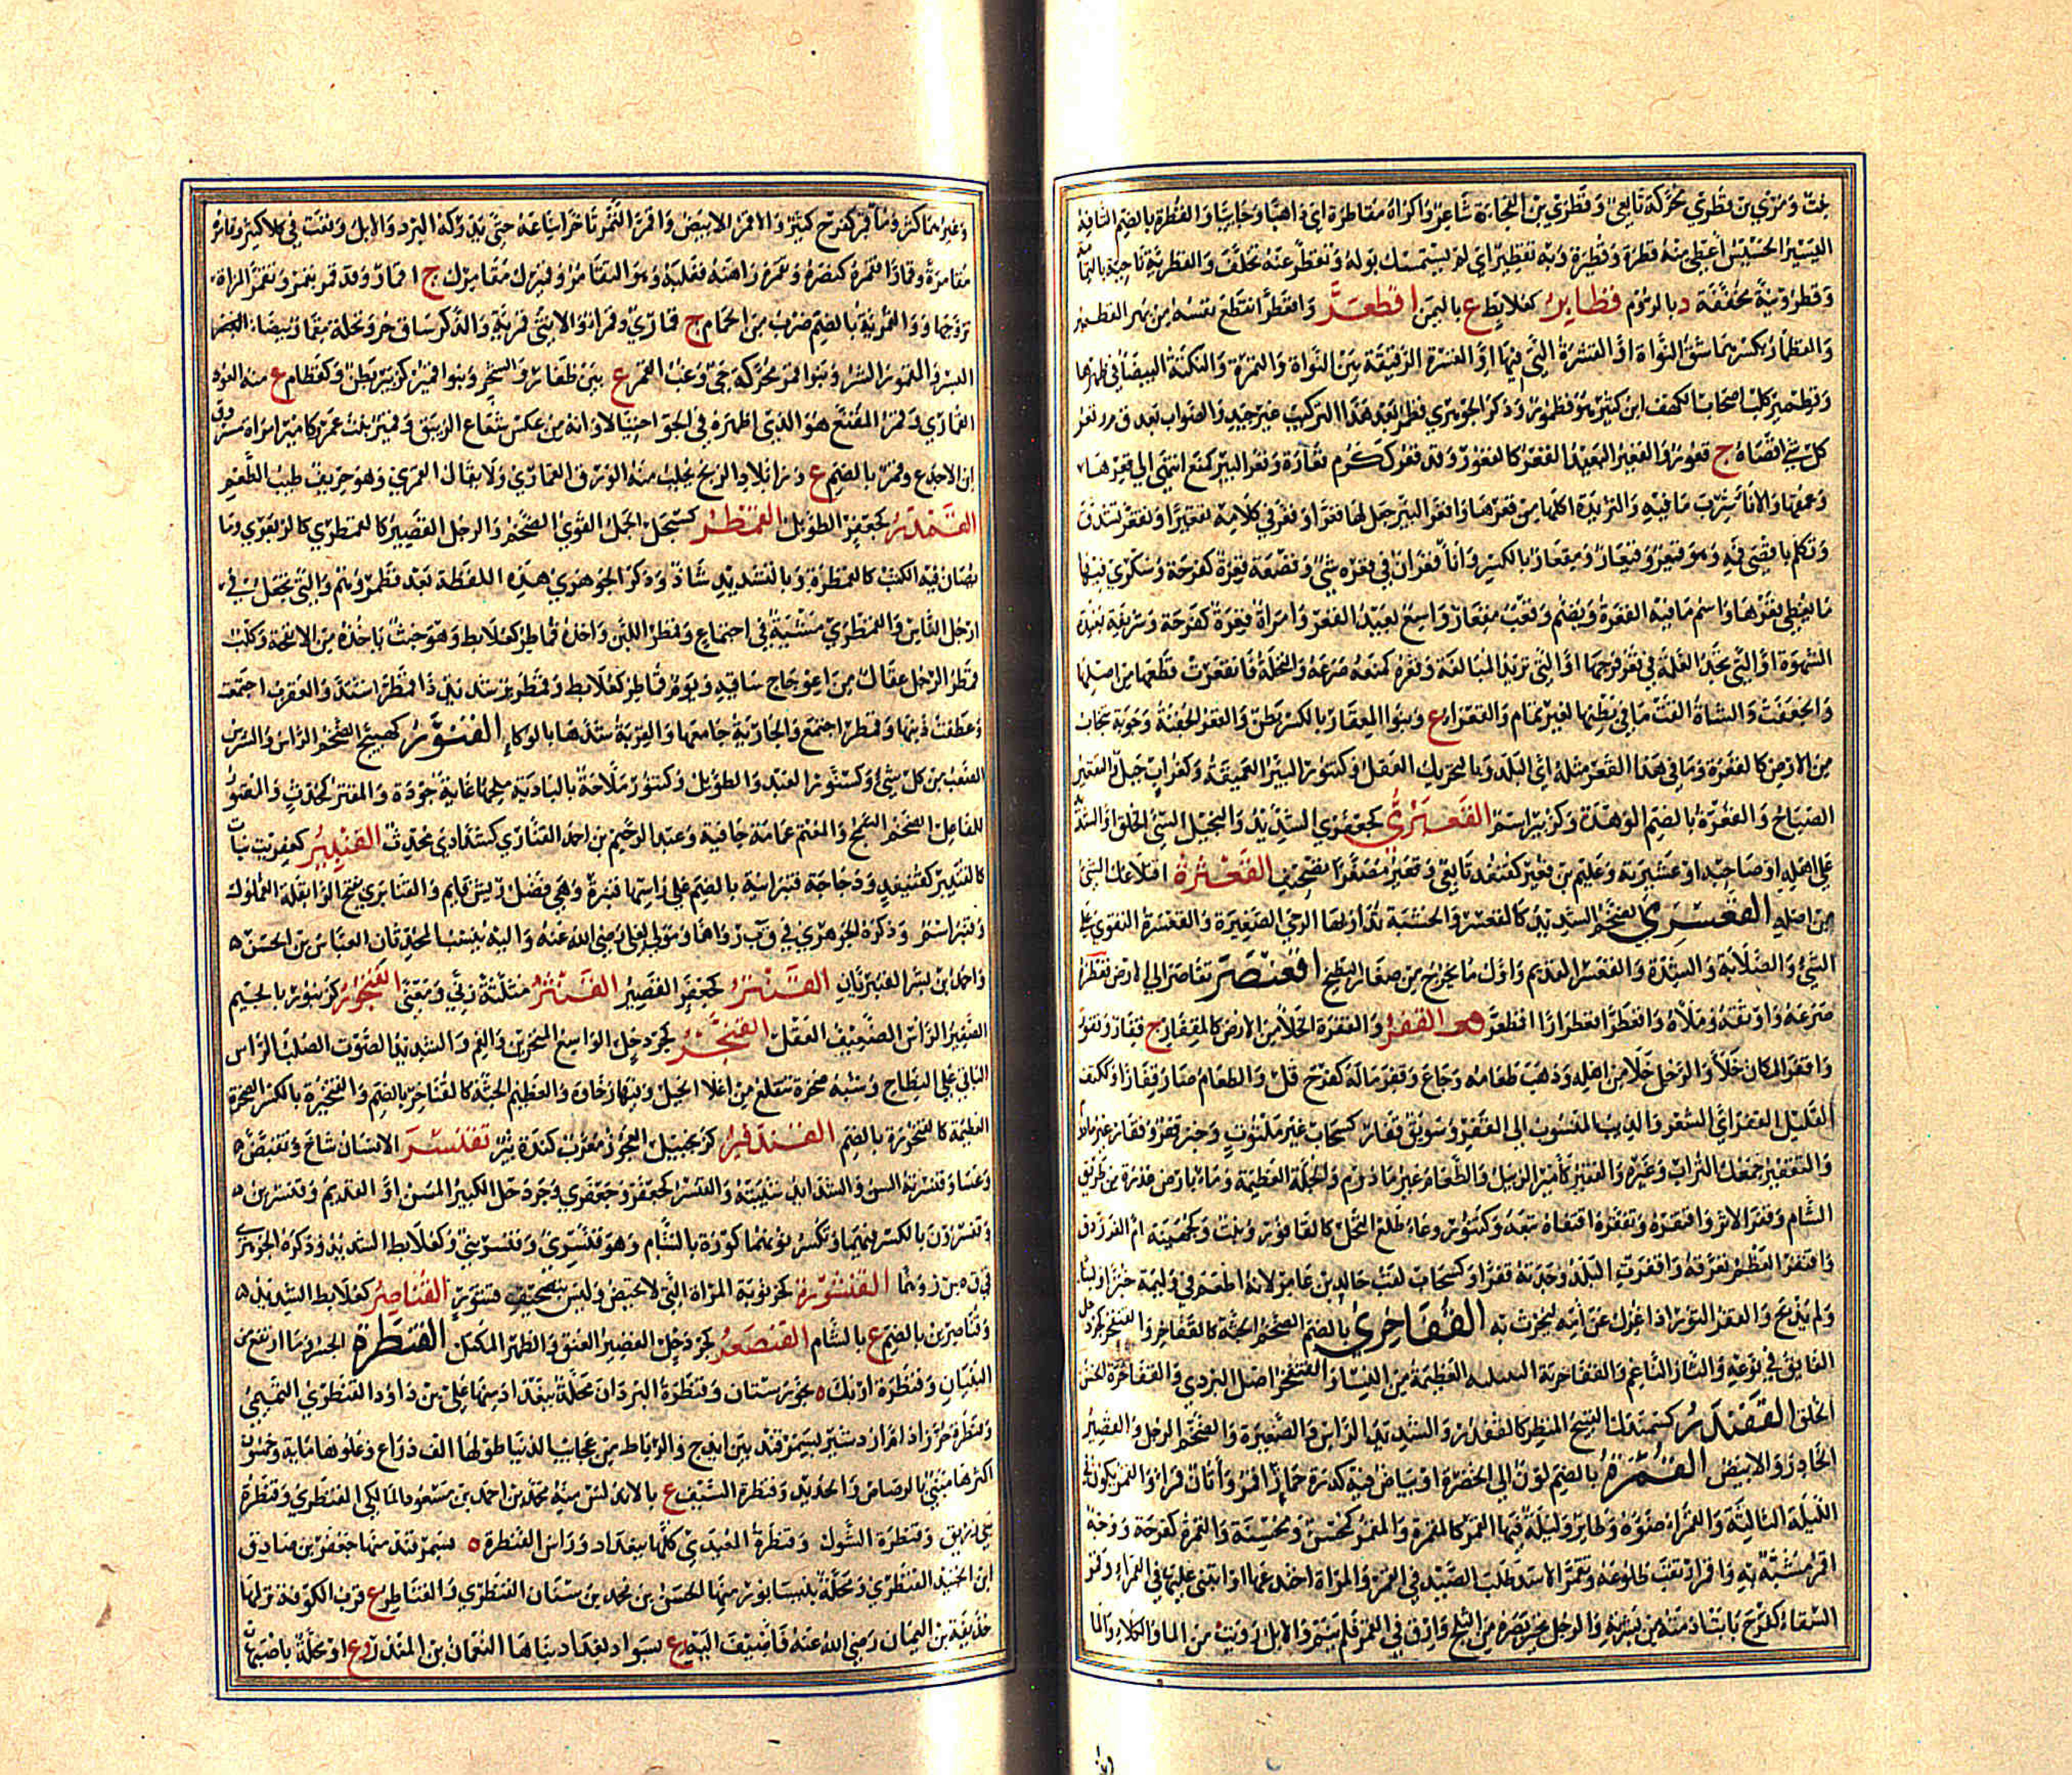 ومري بن قطري محركة تابعي وقطري بن الفجاءة شاعر واكراه مقاطرة اي ذاهبا وجائيا والقطرة بالضم التافه
اليسير الخسيس أعطى منه قطرة وقطيرة وبه تقطير اي لم يستمسك بوله وتقطر عنه تخلف والقطرية ناحية باليمامة
وقطرونية مخففة د بالروم قطاير كعلابط ع باليمن اقطعر واقطر انقطع نفسه من بهر القطمير
والقطمار بكسرهما شق النواة او القشرة التي فيها او القشرة الرقيقة بين النواة والتمرة والنكتة البيضاء في ظهرها
وقطمير كلب اصحاب الكهف ابن كثير هو قطمور وذكر الجوهري قطمر بعد هذا التركيب غير جيد والصواب بعد ق ط ر قعر
كل شئ اقصاه ج قعور والقعير البعيد القعر كالقعور وقد قعر ككرم قعارة وقعر البير كمنع انتهى الى قعرها
وعمقها والاناء شرب ما فيه والثريدة اكلها من قعرها واقعر البير جعل لها قعرا وقعر في كلامه تقعيرا وتقعر تشدق
وتكلم باقصى فيه وهو قيعر وقيعار ومقعار بالكسر واناء قعران في قعره شئ وقصعة قعرة كفرحة وسكرى فيها
ما يغطي قعرها واسم ما فيه القعرة ويضم وقعب مقعار واسع بعيد القعر وامراة قعرة كفرحة وشريفة بعيدة
الشهوة او التي تجد الغلة في قعر فرجها او التي تريد المبالغة وقعره كمنعه صرعه والنخلة فانقعرت قطعها من اصلها
وانجعفت والشاة القت ما في بطنها لغير تمام والقعراء ع وبنوا المقعار بالكسر بطن والقعر الجفنة وجوبة تنجاب
من الارض كالقعرة وما في هذا القعر مثله اي البلد وبالتحريك العقل وكتنور البير العميقة وكغراب جبل والقعير
الصباح والقعرة بالضم الوهدة وكزبير اسم القعبري كجعفري الشديد والبخيل السئ الخلق او الشديد
على اهله او صاحبه او عشيرته وعليم بن قعير كقنفذ تابعي وقعير مصغرا تصحيف القعثرة اقتلاعك الشئ
من اصله القعسري الضخم الشديد كالقعسر والخشبة تدار بها الرحى الصغيرة والقعسرة التقوي على
الشئ والصلابة والشدة والقعسر القديم واول ما يخرج من صغار البطيخ اقعنصر تقاصر الى الارض قعطره
صرعه واوثقه وملأه واقعطر اقعطرارا اقطعر القفر والقفرة الخلا من الارض كالمقفار ج قفار وقفور
واقفر المكان خلا والرجل خلا من اهله وذهب طعامه وجاع وقفر ماله كفرح قل والطعام صار قفارا وككتف
القليل القفر اي الشعر والذيب المنسوب الى القفر وسويق قفار كسحاب غير ملتوت وخبز قفر وقفار غير مادوم
والتقفير جمعك التراب وغيره والقفير كأمير الزبيل والطعام غير مادوم والجلة العظيمة وماء بارض عذرة من طريق
الشام وقفر الاثر واقتفره وتقفره اقتفاه تبعه وكتنور وعاء طلع النخل كالقافور ونبت وكجهينة ام الفرزدق
واقتفر العظم تعرقه واقفرت البلد وجدته قفرا وكسحاب لقب خالد بن عامر لانه اطعم في وليمة خبزا ولبنا
ولم يذبح والقفر الثور اذا عزل عن أمه ليحرث به القفاخري بالضم الضخم الجثة كالقفاخر والقنفخر كجردحل
الفايق في نوعه والتار الناعم والقفاخرية النبيلة العظيمة من النساء والقنفخر اصل البردي والقفاخرة الحسن
الخلق القفندر كسمندل القبيح المنظر كالقفدر والشديد الراس والصغيره والضخم الرجل والقصير
الحادر والابيض القمرة بالضم لون الى الخضرة او بياض فيه كدرة حمار اقمر واتان قمراء والقمر يكون في
الليلة الثالثة والقمراء ضوءه وطاير وليلة فيها القمر كالمقمرة والمقمر كمحسن ومحسنة والقمرة كفرحة ووجه
اقمر مشبه به واقمر ارتقب طلوعه وتقمر الاسد طلب الصيد في القمر والمراة اختدعها او ابتنى عليها في القمراء وقمر
السقاء كفرح بانت ادمته من بشرته والرجل تحير بصره من الثلج وارق في القمر فلم ينم والابل رويت من الماء والكلاء والماء
وغيرهما كثر وماء قمر كفرح كثير والاقمر الابيض واقمر الثمر تأخر ايناعه حتى يدركه البرد والابل وقعت في كلاء كثير وقامره
مقامرة وقمارا فقمره كنصره وتقمره راهنه فغلبه وهو التقامر وقميرك مقامرك ج اقمار وقد قمر يقمر وتقمر المراة
تزوجها والقمرية بالضم ضرب من الحمام ج قماري وقمر او الانثى قمرية والذكر ساق حر ونخلة مقمار بيضاء البسر
البسر والقمور الشر وبنوا قمر محركة حي وغب القمر ع بين ظفار والشحر وبنوا قمير كزبير بطن وكقطام ع منه العود
القماري وقمر المقنع هو الذي اظهره في الجو احتيالا وانه من عكس شعاع الزيبق وقمير بنت عمرو كامير امراة مسروق
بن الاجدع وقمر بالضم ع وراء بلاد الزنج يجلب منه الورق القماري ولا يقال القمري وهو حريف طيب الطعم
القمدر كجعفر الطويل القمطر كسجل الجمل القوي الضخم والرجل القصير كالقمطري كالزبعري وما
يصان فيه الكتب كالقمطرة وبالتشديد شاذ وذكر الجوهري هذه اللفظة بعد قطمر وهم والتي تجعل في
ارجل الناس والقمطري مشية في اجتماع وقمطر اللبن واخذه قماطر كعلابط وهو خبث ياخذه من الانفحة وكلب
قمطر الرجل عقال من اعوجاج ساقيه ويوم قماطر كعلابط وقمطرير شديد ذا قمطر اشتد والعقرب اجتمعت
وعطفت ذنبها وقمطر اجتمع والجارية جامعها والقربة شدها بالوكاء القنور كهبيخ الضخم الراس والشرس
الصعب من كل شئ وكسنور العبد والطويل وكتنور ملاحة بالبادية ملحها غاية جودة والمقنر كمحدث والمقنور
للفاعل الضخم السمج والمعتم عمامة جافية وعبد الرحيم بن احمد القناري كشدادي محدث القنبير كعفريت نبات
كالقنيبر كقنيفد ودجاجة قنبرانية بالضم على راسها قنبرة وهي فضل ريش قايم والقنابري بفتح الراء بقلة الغملول
وقنبر اسم وذكره الجوهري في ق ب ر واهما ومولى لعلي رضي الله عنه واليه ينسب المحدثان العباس بن الحسن
واحمد بن بشر القنبريان القنثر كجعفر القصير القنثر مثلثة زنة ومعنى القنجور كزنبور بالجيم
الصغير الراس الضعيف العقل القنخر كجردحل الواسع المنخرين والفم والشديد الصوت الصلب الراس
الباقي على النطاح وشبه صخرة تنقلع من اعلا الجبل وفيها رخاوة والعظيم الجثة كالقناخر بالضم والقنخيرة بالكسر الصخرة
العظيمة كالقنخورة بالضم القندفير كزنجبيل العجوز معرب كنده پير تقنسر الانسان شاخ وتقبض
وعسا وقنسرته السن والشدايد شيبته والقنسر كجعفر وجعفري وجردحل الكبير المسن او القديم وقنسرين
وقنسرون بالكسر فيهما وتكسر نونهما كورة بالشام وهو قنسري وقنسريني وكعلابط الشديد وذكره الجوهري
في ق س ر وهما القنشورة كخرنوبة المراة التي لا تحيض وليس بتصحيف قنثورة القناصر كعلابط الشديد
وقناصرين بالضم ع بالشام القنصعر كجردحل القصير العنق والظهر المكتل القنطرة الجسر وما ارتفع من
البنيان وقنطرة اربك ه بخوزستان وقنطرة البردان محلة ببغداد منها علي بن داود القنطري التميمي
وقنطرة خرزاد ام اردشير بسمرقند بين ايذج والرباط من عجايب الدنيا طولها الف ذراع وعلوها ماية وخمسون
اكثرها مبني بالرصاص والحديد وقنطرة السيف ع بالاندلس منه محمد بن احمد بن مسعود المالكي القنطري وقنطرة
بني زريق وقنطرة الشوك وقنطرة المعبدي كلها ببغداد وراس القنطرة ه بسمرقند منها جعفر بن صادق
ابن الجنيد القنطري ومحلة بنيسابور منها الحسن بن محمد بن سنان القنطري والقناطر ع قرب الكوفة نزلها
حذيفة بن اليمان رضي الله عنه فاضيف اليه وع بسواد بغداد بناها النعمان بن المنذر وع او محلة باصبهان